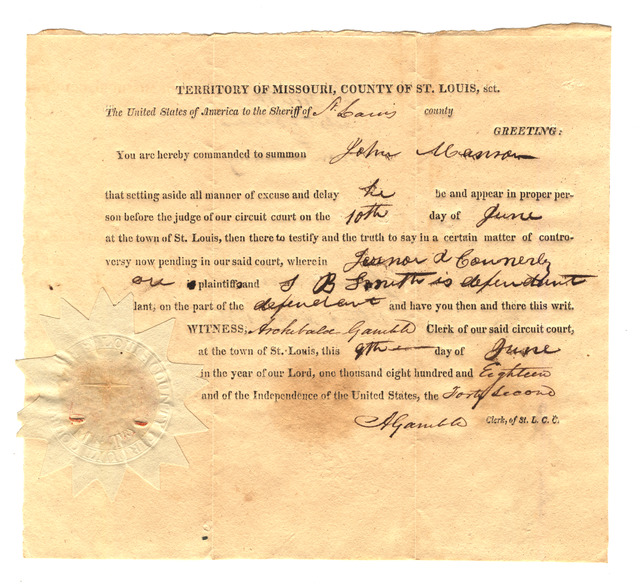 TERRITORY OF MISSOURI, COUNTY OF ST. LOUIS, sct.
The United States of America to the Sheriff of St. Louis county
GREETING:
You are hereby commanded to summon John
that setting aside all manner of excuse and delay he be and appear in proper per-
son before the judge of our circuit court on the 10th day of June
at the town of St. Louis, then there to testify and the truth to say in a certain matter of contro-
versy now pending in our said court, wherein & Connerly
are plaintiffs and J B Smith is defendant
lant, on the part of the defendant and have you then and there this writ.
WITNESS, Archibald Gamble Clerk of our said circuit court,
at the town of St. Louis, this 9th day of June
in the year of our Lord, one thousand eight hundred and Eighteen
and of the Independence of the United States, the Forty Second
A Gamble Clerk, of St. L. C. C.